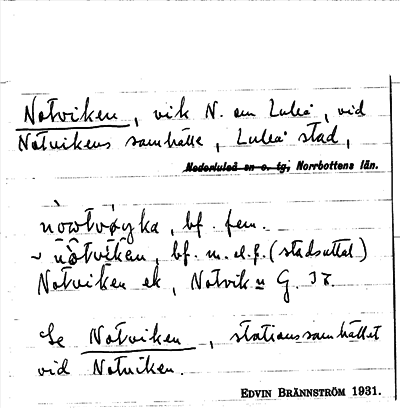 Notviken, vik N. om Luleå, vid
Notvikens samhälle, Luleå stad,
Nederluleå sn o. tg, Norrbottens län.
nowtvøyka, bf. fem.
~ nötviken, bf. m. el. f. (stadsuttal)
Notviken ek, Notvik= G.
Se Notviken, stationssamhället
vid Notviken.
EDVIN BRÄNNSTRÖM 1931.